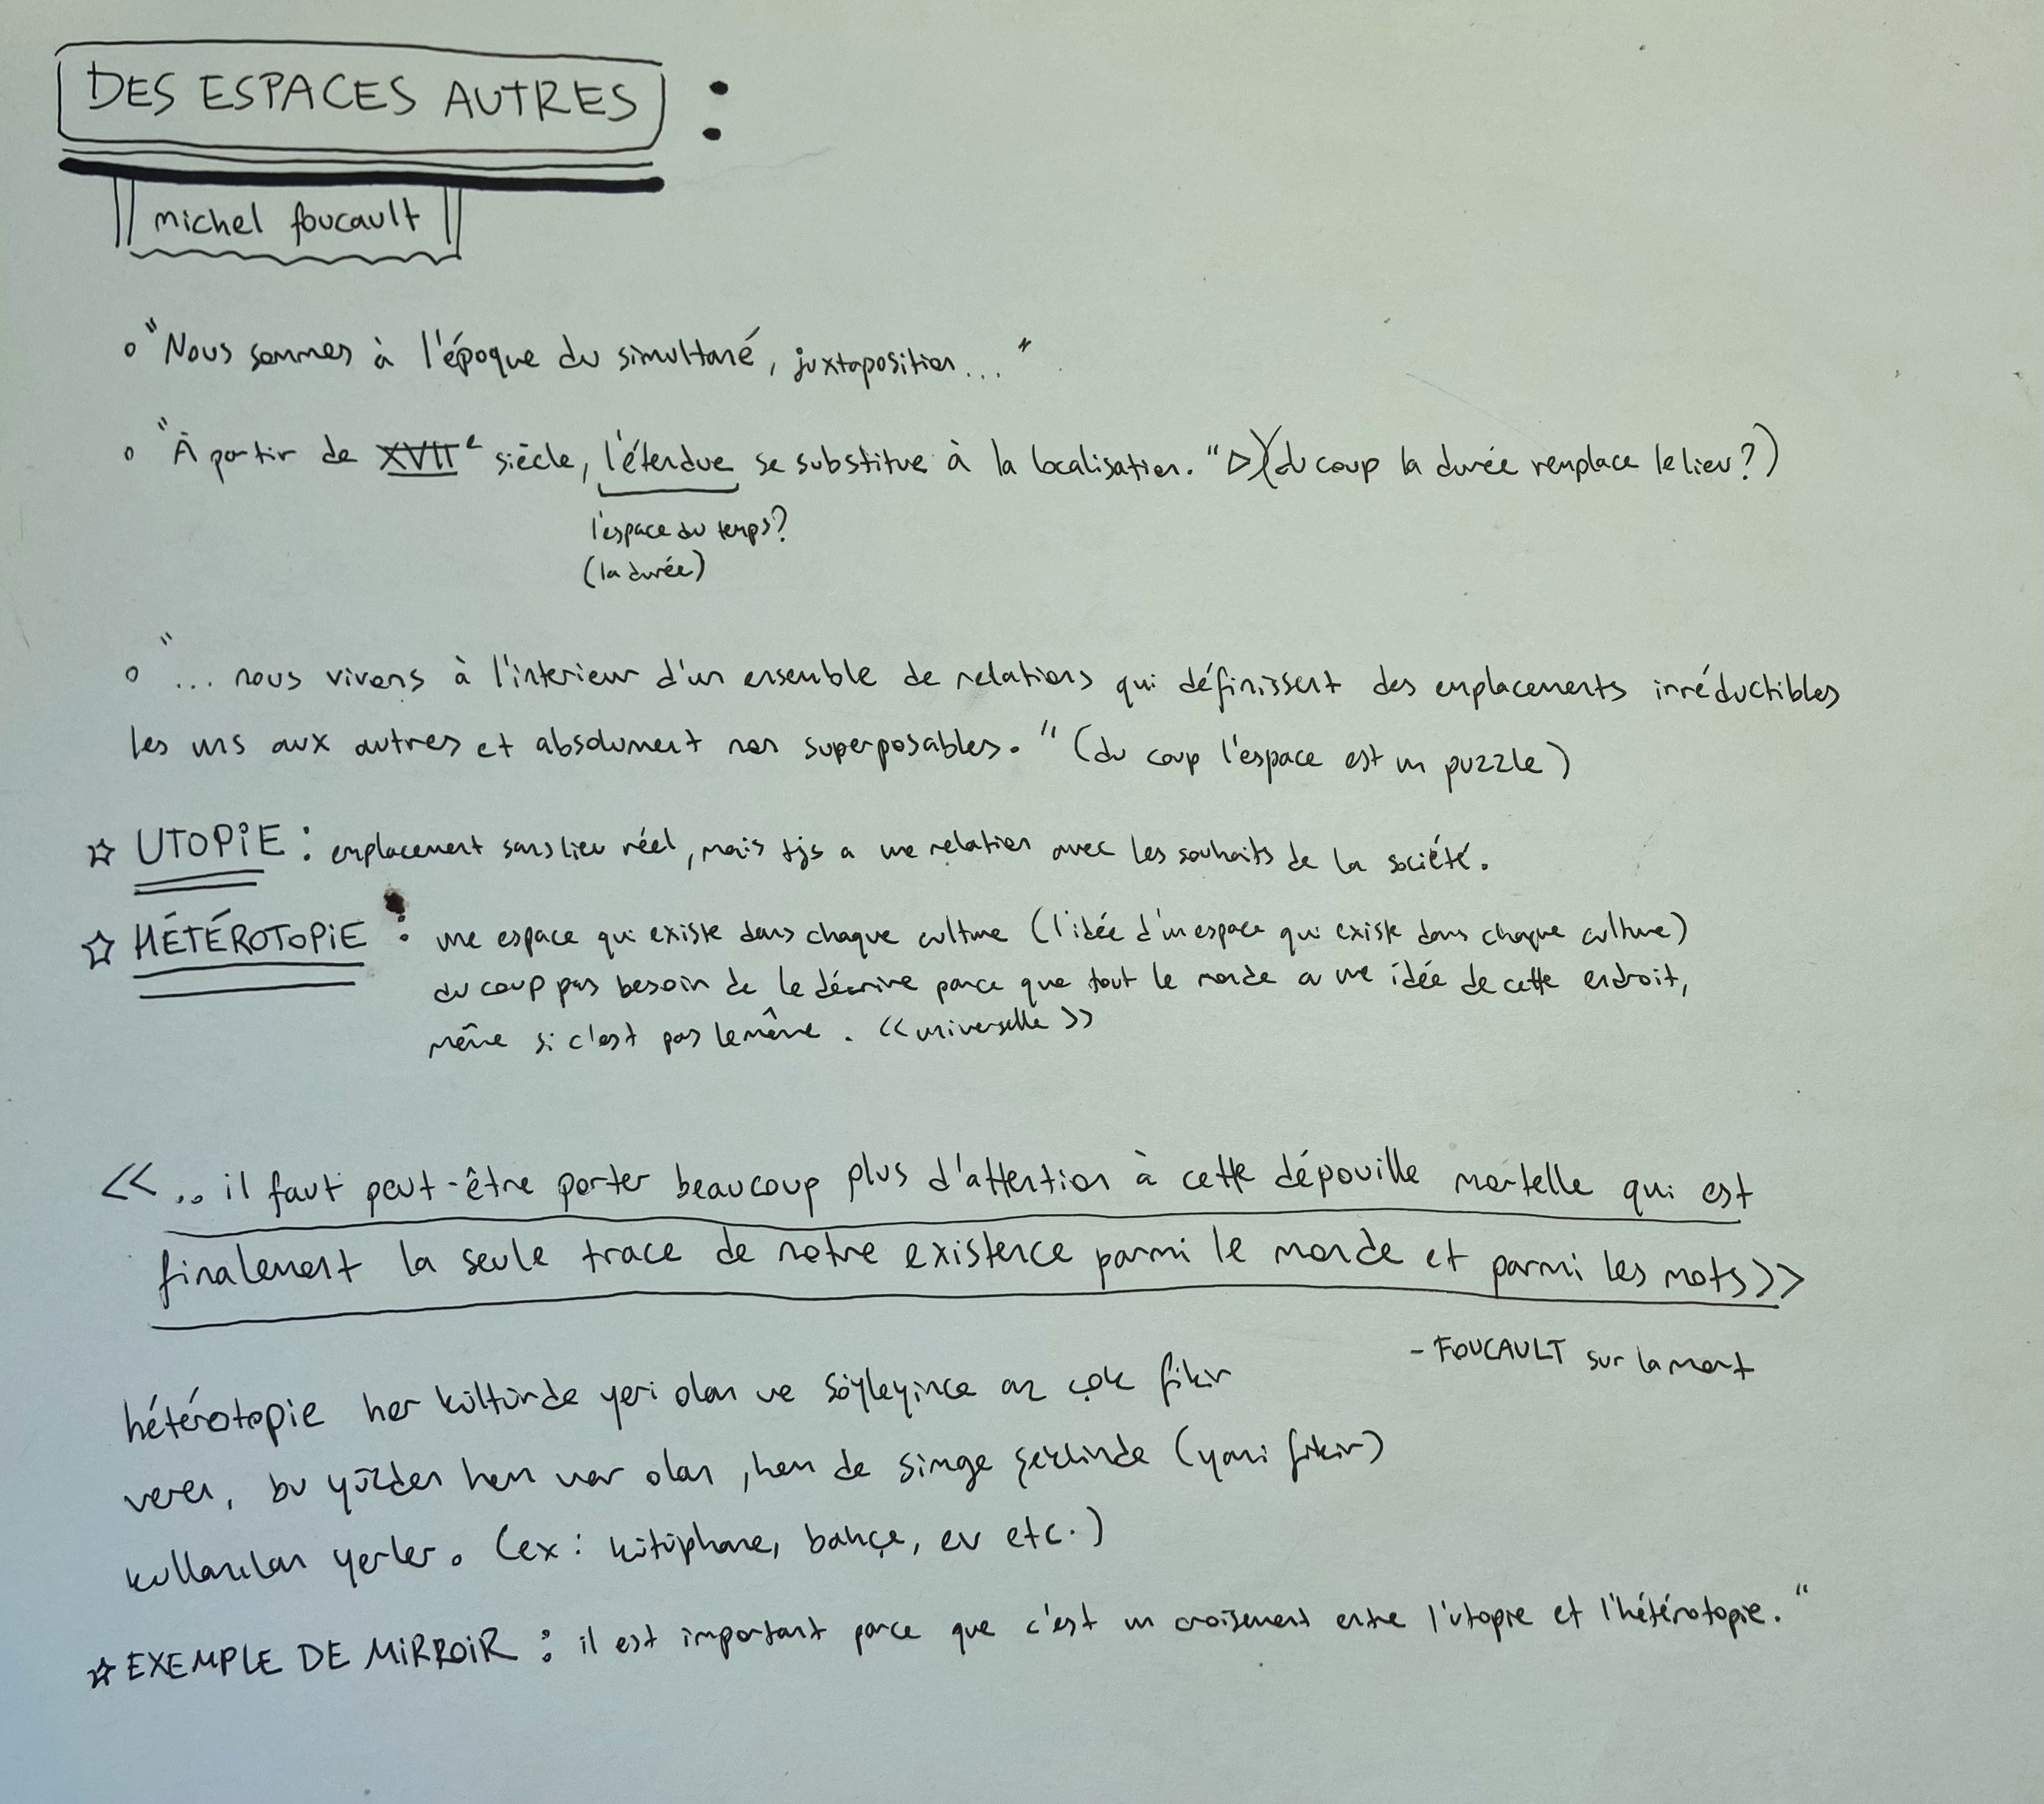 DES ESPACES AUTRES :
michel foucault
o "Nous sommes à l'époque du simultané, juxtaposition... "
o "À partir de XVIIe siècle, l'étendue se substitue à la localisation. " ▷ (du coup la durée remplace le lieu?)
l'espace du temps?
(la durée)
o "... nous vivons à l'interieur d'un ensemble de relations qui définissent des emplacements irréductibles
les uns aux autres et absolument non superposables. " (du coup l'espace est un puzzle)
☆ UTOPiE : emplacement sans lieu réel, mais tjs a une relation avec les souhaits de la société.
☆ HÉTÉROTOPiE : une espace qui existe dans chaque culture (l'idée d'un espace qui existe dans chaque culture)
du coup pas besoin de le décrire parce que tout le monde a une idée de cette endroit,
même si c'est pas le même. <<universelle>>
<<... il faut peut-être porter beaucoup plus d'attention à cette dépouille mortelle qui est
finalement la seule trace de notre existence parmi le monde et parmi les mots>>
- FOUCAULT sur la mort
hétérotopie her kültürde yeri olan ve söyleyince az çok fikir
veren, bu yüzden hem var olan, hem de simge şeklinde (yani fikir)
kullanılan yerler. (ex: kütüphane, bahçe, ev etc.)
☆ EXEMPLE DE MiRROiR : il est important parce que c'est un croisement entre l'utopie et l'hétérotopie. "